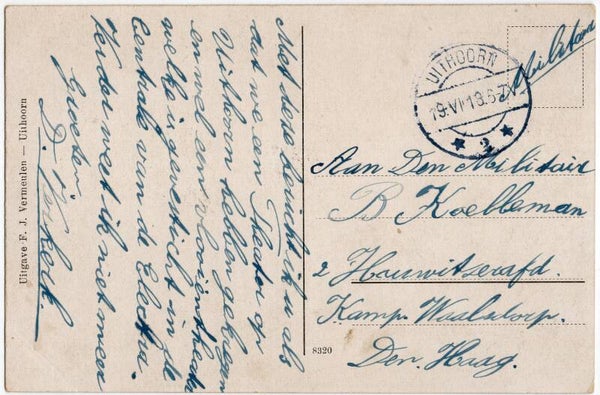 Met deze bericht ik u als
dat we een Theater op
Uithoorn hebben gekregen
en wel een vlooijentheater
welke is gevesticht in de
Centrale van de Electra.
Verder weet ik niet meer
Groeten
D. Verkerk.
Uitgave F. J. Vermeulen — Uithoorn
8320
UITHOORN
19.VI.18.5-7N
2
Militair
Aan Den Militair
B Koelleman
2 Houwitserafd.
Kamp Waalsdorp.
Den Haag.